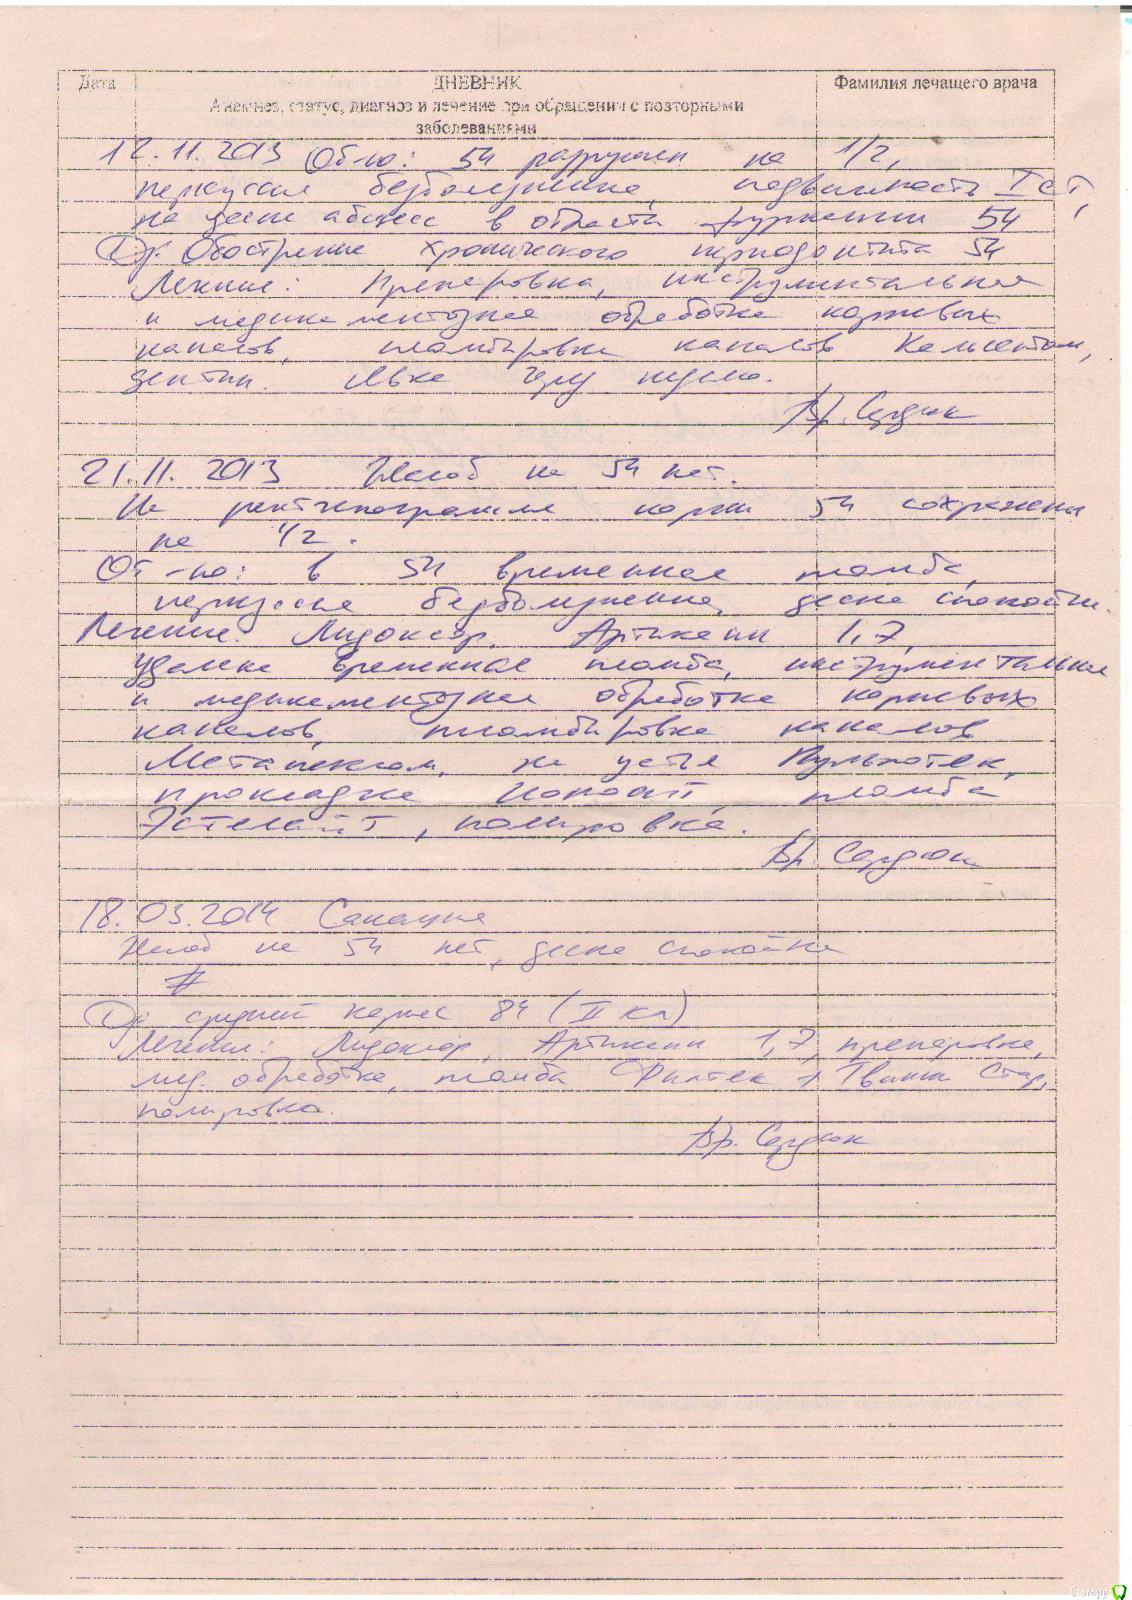 Дата
ДНЕВНИК
Фамилия лечащего врача
Анамнез, статус, диагноз и лечение при обращении с повторными
заболеваниями
12.11.2013 Об-но: 54 разрушен на 1/2,
перкуссия безболезненна, подвижность I ст,
на десне абсцесс в области фуркации 54
Dз: Обострение хронического периодонтита 54
Лечение: Препаровка, инструментальная
и медикаментозная обработка корневых
каналов, пломбировка каналов Кальсептом,
дентин. Явка через неделю.
Вр. Сердюк
21.11.2013 Жалоб на 54 нет.
На рентгенограмме корни 54 сохранены
на 1/2.
От-но: в 54 временная пломба,
перкуссия безболезненна, десна спокойн.
Лечение: Лидоксор, Артикаин 1,7,
удалена временная пломба, инструментальная
и медикаментозная обработка корневых
каналов, пломбировка каналов
Метапексом, на устья Пульпотек,
прокладка Ионосит, пломба
Эстелайт, полировка.
Вр. Сердюк
18.03.2014 Санация
Жалоб на 54 нет, десна спокойна
Dз средний кариес 84 (II кл)
Лечение: Лидоксор, Артикаин 1,7, препаровка,
мед. обработка, пломба Филтек + Твинки Стар,
полировка.
Вр. Сердюк